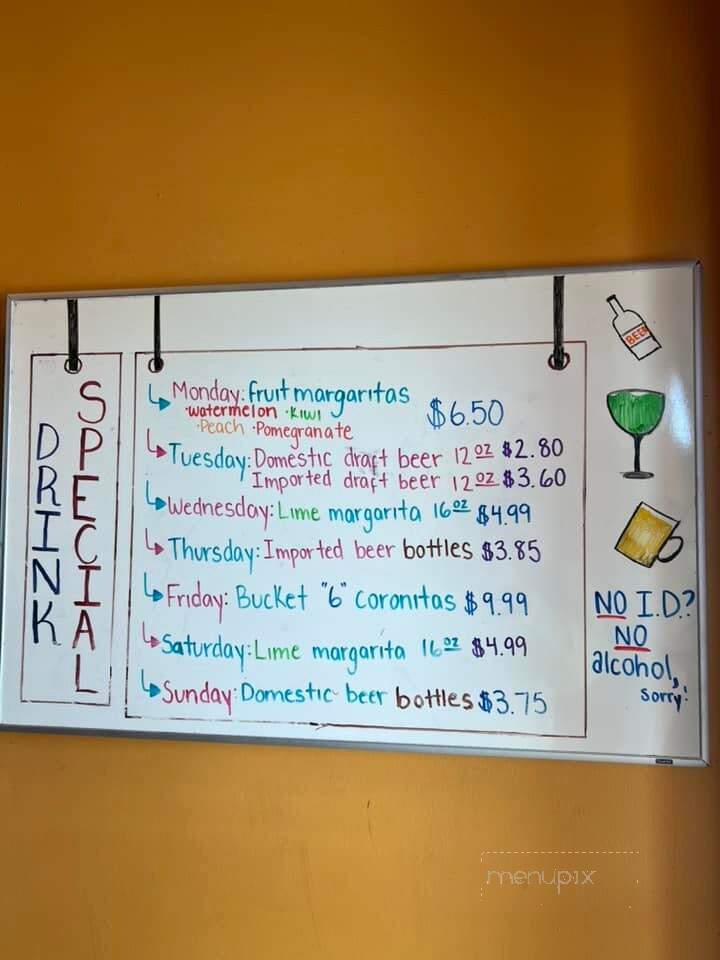 DRINK
SPECIAL
Monday: fruit margaritas
•watermelon •Kiwi
•Peach •Pomegranate
$6.50
Tuesday: Domestic draft beer 12oz $2.80
Imported draft beer 12oz $3.60
Wednesday: Lime margarita 16oz $4.99
Thursday: Imported beer bottles $3.85
Friday: Bucket "6" coronitas $9.99
Saturday: Lime margarita 16oz $4.99
Sunday: Domestic beer bottles $3.75
BEER
NO I.D.?
NO
alcohol,
sorry!
menupix